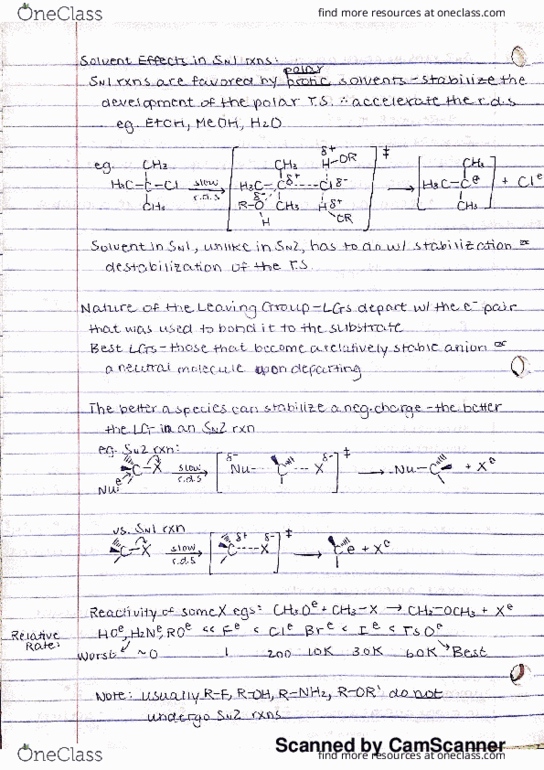 OneClass
find more resources at oneclass.com
Solvent Effects in SN1 rxns:
polar
SN1 rxns are favored by protic solvents - stabilize the
development of the polar T.S. ∴ accelerate the r.d.s
eg. EtOH, MeOH, H2O
eg. CH3 CH3 δ+ H-OR ‡ CH3
H3C-C-Cl slow r.d.s H3C-C δ+ ----Cl δ- H3C-C⊕ + Cl⊖
CH3 R-O CH3 H δ+ CH3
H OR
Solvent in SN1, unlike in SN2, has to do w/ stabilization or
destabilization of the T.S.
Nature of the Leaving Group - LGs depart w/ the e- pair
that was used to bond it to the substrate
Best LGs - those that become a relatively stable anion or
a neutral molecule upon departing
The better a species can stabilize a neg. charge - the better
the LG in an SN2 rxn
eg. SN2 rxn:
C-X slow δ- Nu- C --- X δ- ‡ → Nu-C + X⊖
Nu⊖ r.d.s
vs. SN1 rxn
C-X slow δ+ C----X δ- ‡ → C⊕ + X⊖
r.d.s
Reactivity of some X egs: CH3O⊖ + CH3-X → CH3-OCH3 + X⊖
Relative HO⊖, H2N⊖, RO⊖ << F⊖ < Cl⊖ Br⊖ < I⊖ < TsO⊖
Rate:
Worst ~0 1 200 10K 30K 60K Best
Note: usually R-F, R-OH, R-NH2, R-OR' do not
undergo SN2 rxns
Scanned by CamScanner
OneClass
find more resources at oneclass.com